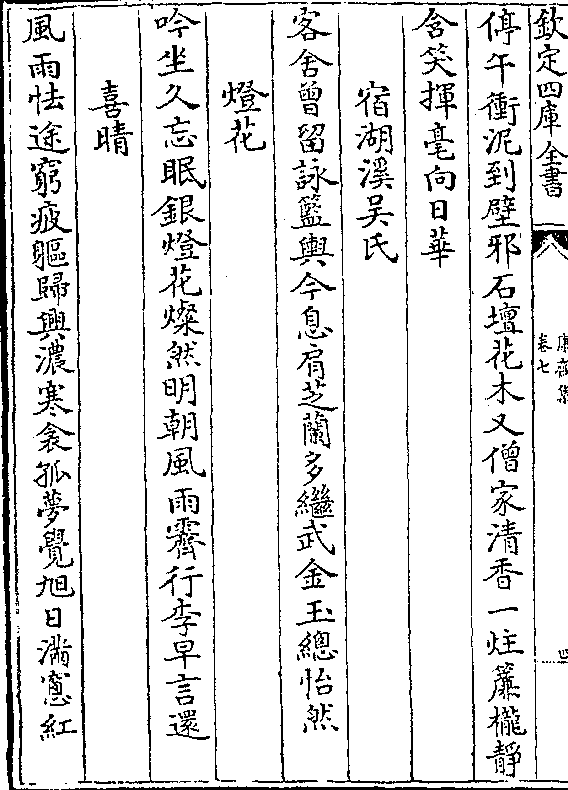 欽定四庫全書
卷七
四
停午衝泥到壁邪石壇花木又僧家清香一炷簾櫳靜
含笑揮毫向日華
宿湖溪吳氏
客舍曾留詠籃輿今息肩芝蘭多繼武金玉總怡然
燈花
吟坐久忘眠銀燈花燦然明朝風雨霽行李早言還
喜晴
風雨怯途窮疲軀歸興濃寒衾孤夢覺旭日滿窻紅